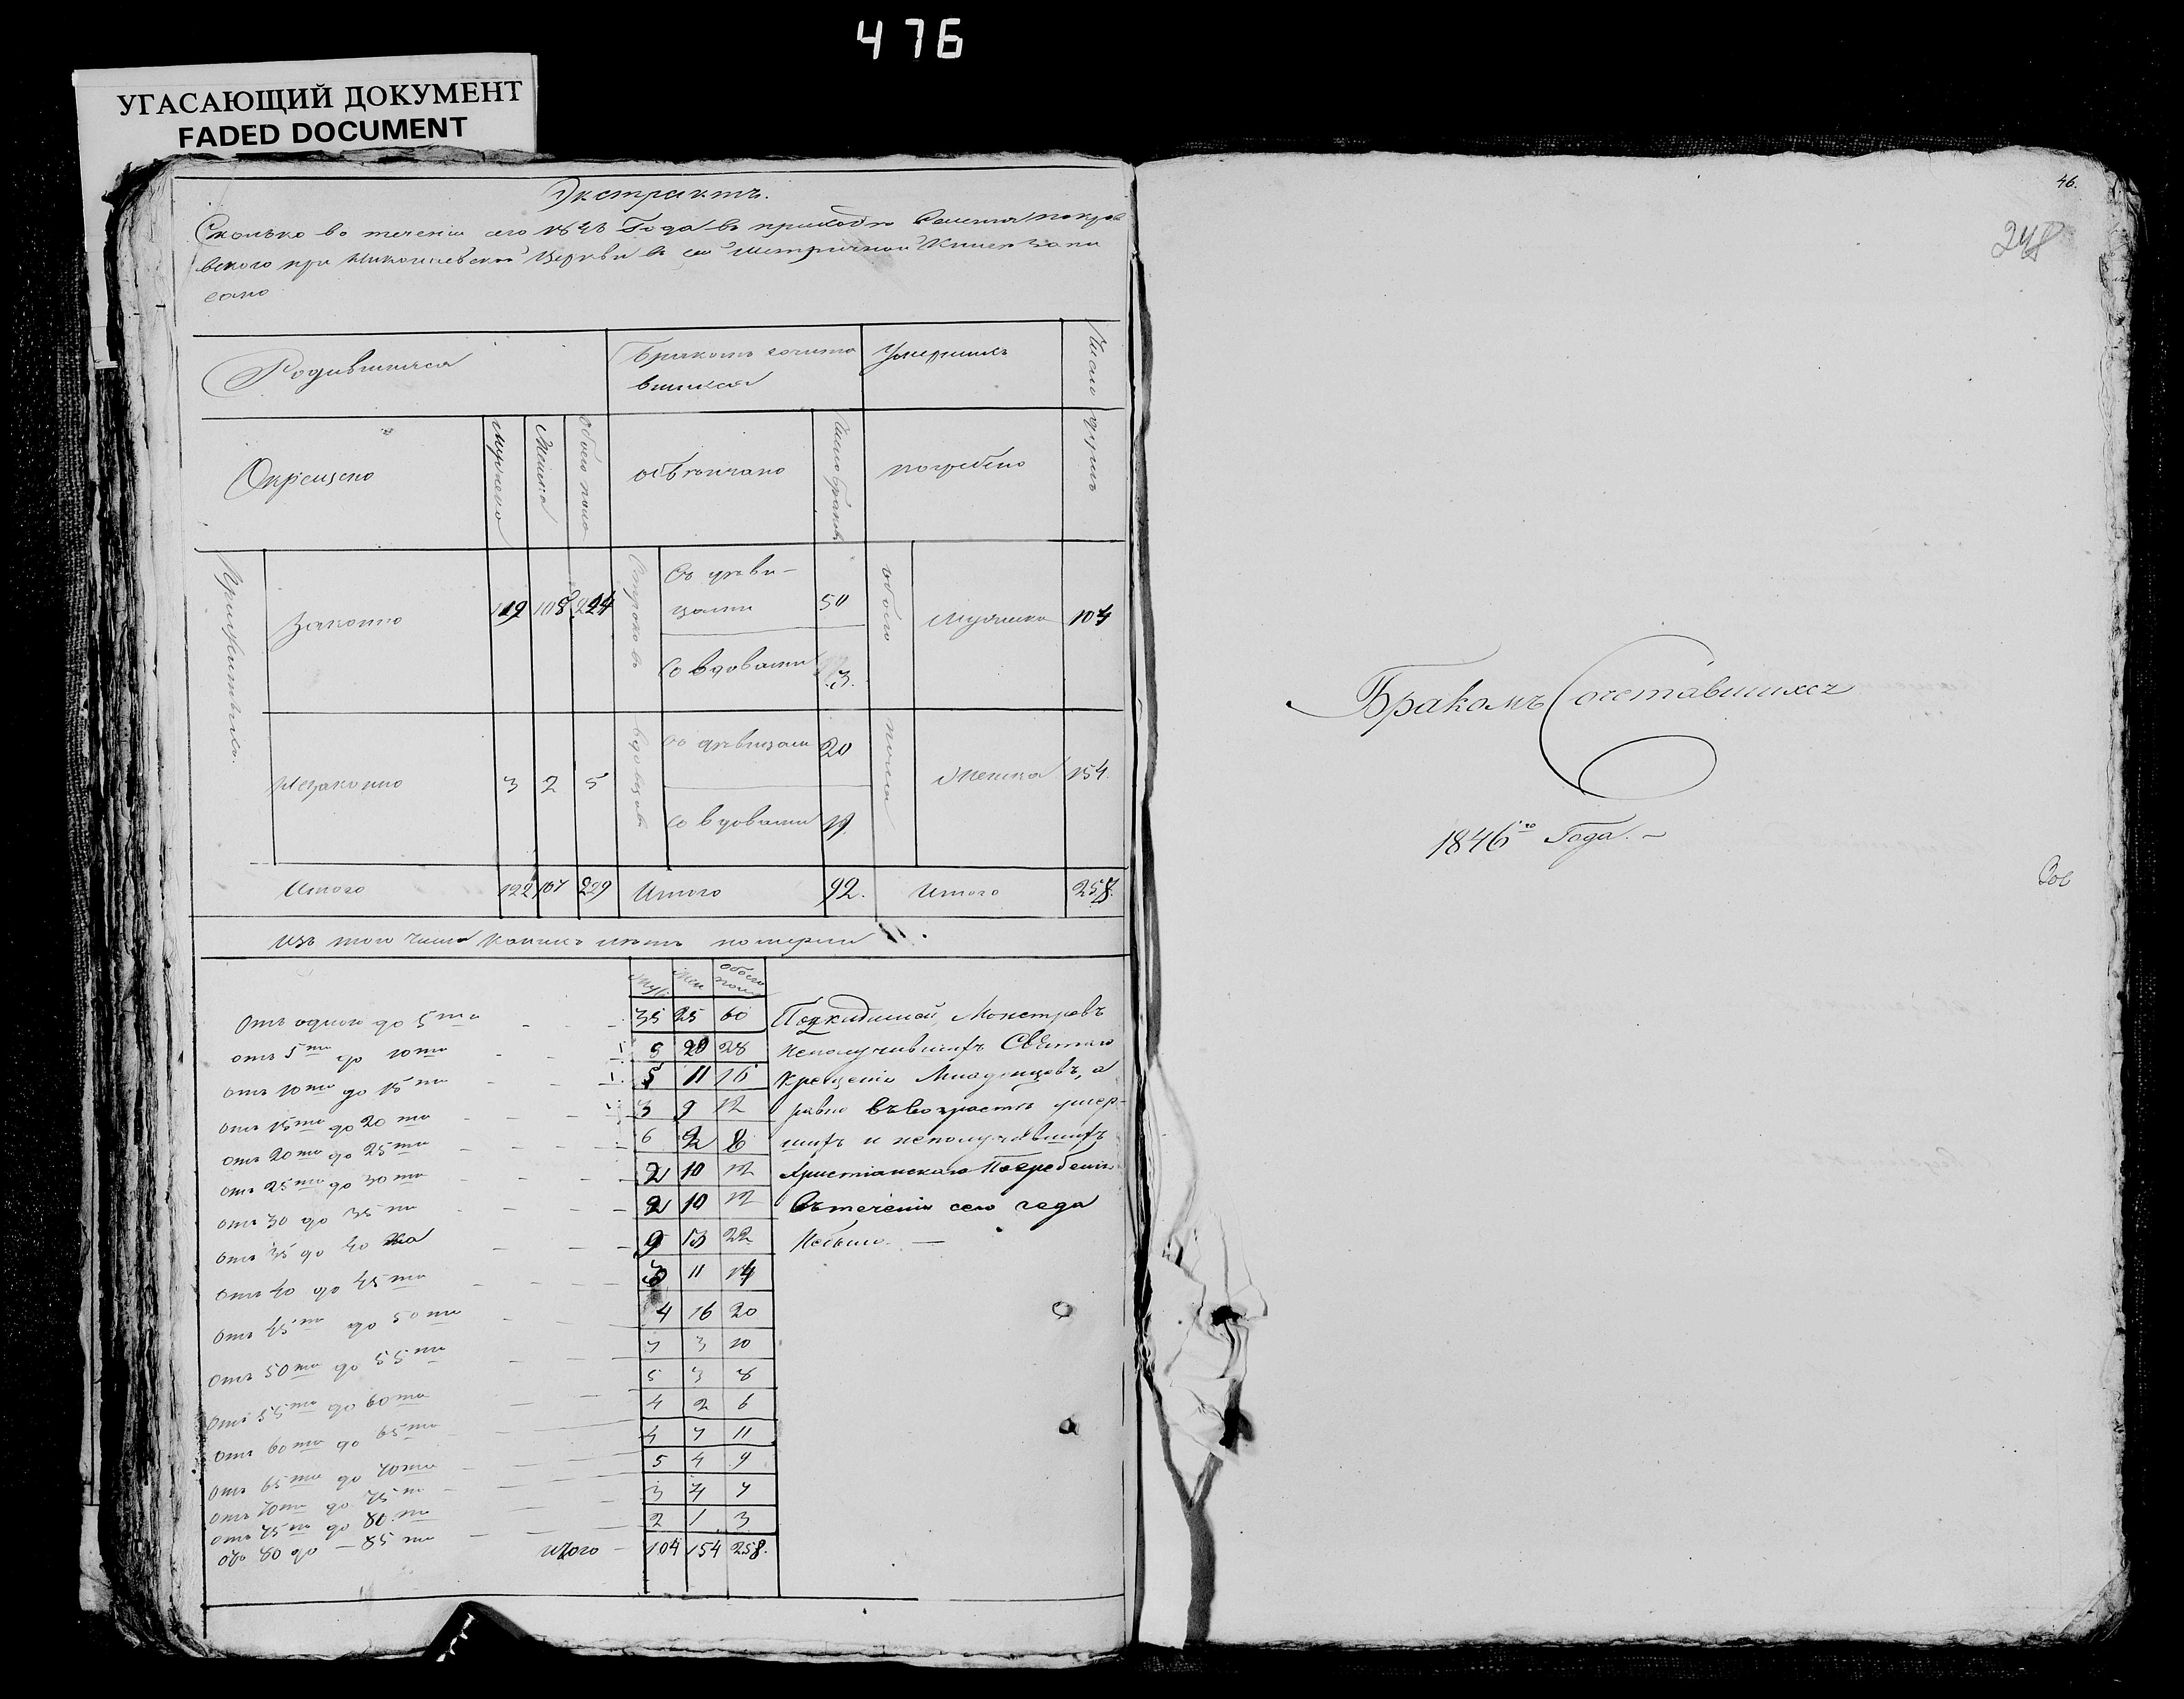 476
УГАСАЮЩИЙ ДОКУМЕНТ
FADED DOCUMENT
Экстрактъ.
Сколько въ теченіи сего Года въ приходѣ
при Николаевской Церкви въ сей Метричной Книге запи
сано
Родившихся
Бракомъ сочета
вшихся
Умершихъ
Число душъ
Окрещено
Мужеска
Женска
Обоего пола
обвѣнчано
Число браковъ
погребено
Законно
119 108 224
Съ дѣви-
цами
50
обоего
Мужеска
104
Со вдовами
3.
Незаконно
3 2 5
вдовцовъ
Съ дѣвицами
20
пола
Женска
154.
Со вдовами
19
Итого
122 107 229
Итого
92.
Итого
258.
Изъ того числа коликихъ лѣтъ померли
Муж Жен обоего пола
Отъ одного до 5ти 35 25 60
отъ 5ти до 10ти 8 20 28
отъ 10ти до 15ти 5 11 16
отъ 15ти до 20ти 3 9 12
отъ 20ти до 25ти 6 2 8
отъ 25ти до 30ти 2 10 12
отъ 30 до 35ти 2 10 12
отъ 35 до 40 9 13 22
отъ 40 до 45ти 3 11 14
отъ 45ти до 50ти 4 16 20
отъ 50ти до 55ти 7 3 10
отъ 55ти до 60ти 5 3 8
отъ 60ти до 65ти 4 2 6
отъ 65ти до 70ти 4 7 11
отъ 70ти до 75ти 5 4 9
отъ 75ти до 80ти 3 4 7
отъ 80 до 85ти 2 1 3
итого 104 154 258.
Подкидышей, Монстровъ
неполучившихъ Святаго
Крещенія Младенцовъ, а
равно въ возрасте умер-
шихъ и неполучившихъ
Христіанскаго Погребенія
въ теченіи сего года
Небыло. —
46.
248
Бракомъ Сочетавшихся
1846го Года. -